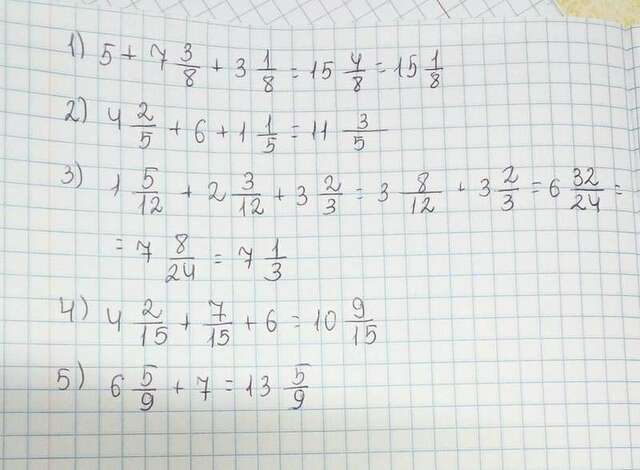 1) 5 + 7 3/8 + 3 1/8 = 15 4/8 = 15 1/8
2) 4 2/5 + 6 + 1 1/5 = 11 3/5
3) 1 5/12 + 2 3/12 + 3 2/3 = 3 8/12 + 3 2/3 = 6 32/24 =
= 7 8/24 = 7 1/3
4) 4 2/15 + 7/15 + 6 = 10 9/15
5) 6 5/9 + 7 = 13 5/9